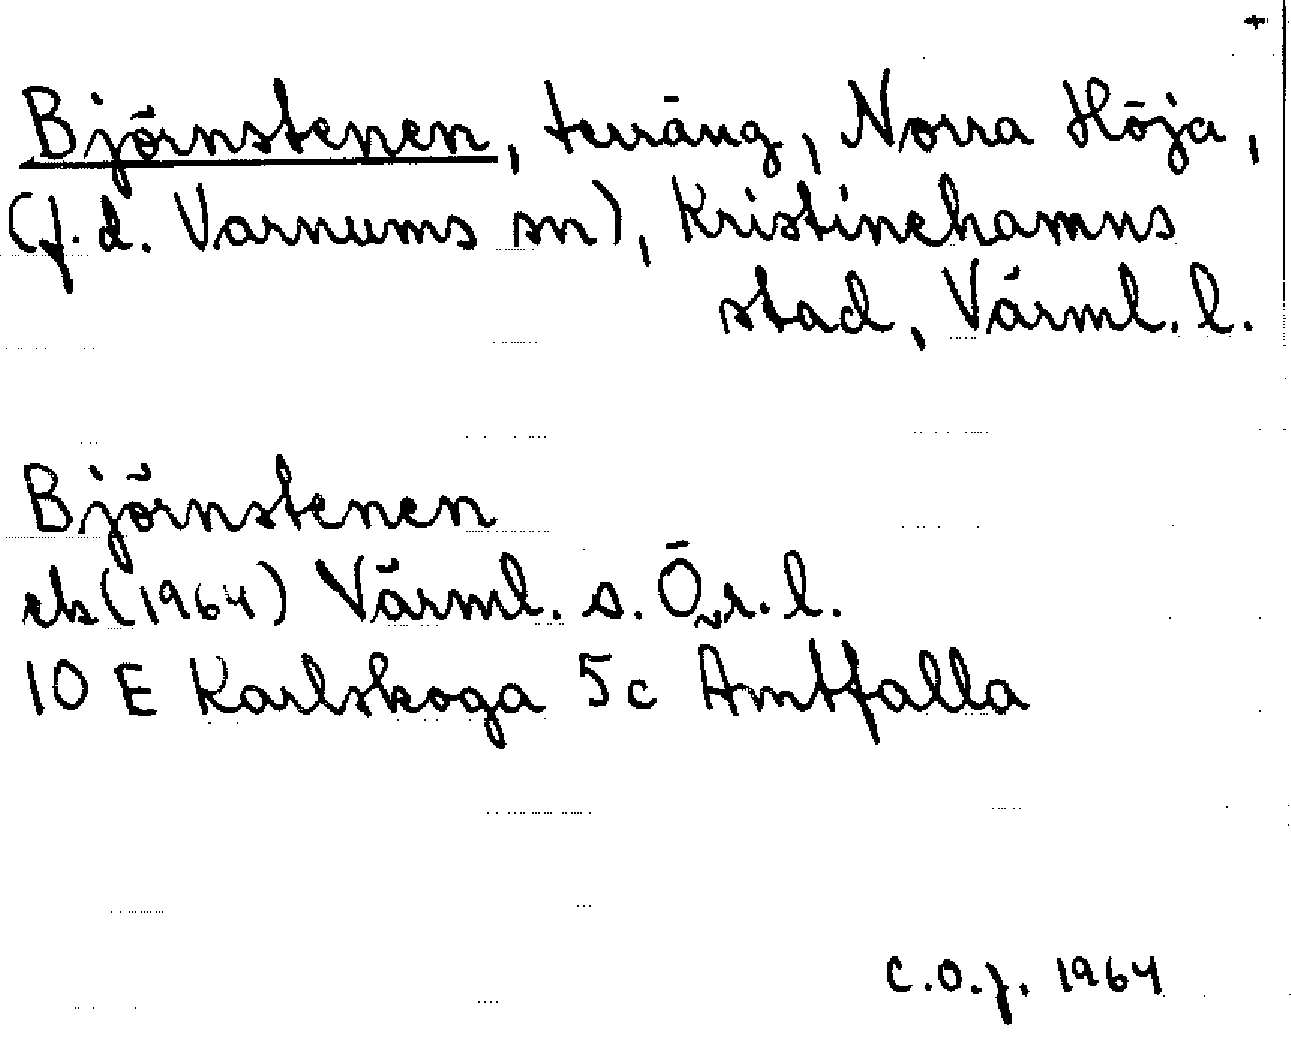 +
Björnstenen, terräng, Norra Höja,
(f.d. Varnums sn), Kristinehamns
stad, Värml. l.
Björnstenen
ek (1964) Värml. s. Övr. l.
10 E Karlskoga 5c Amtfalla
C.O.J. 1964